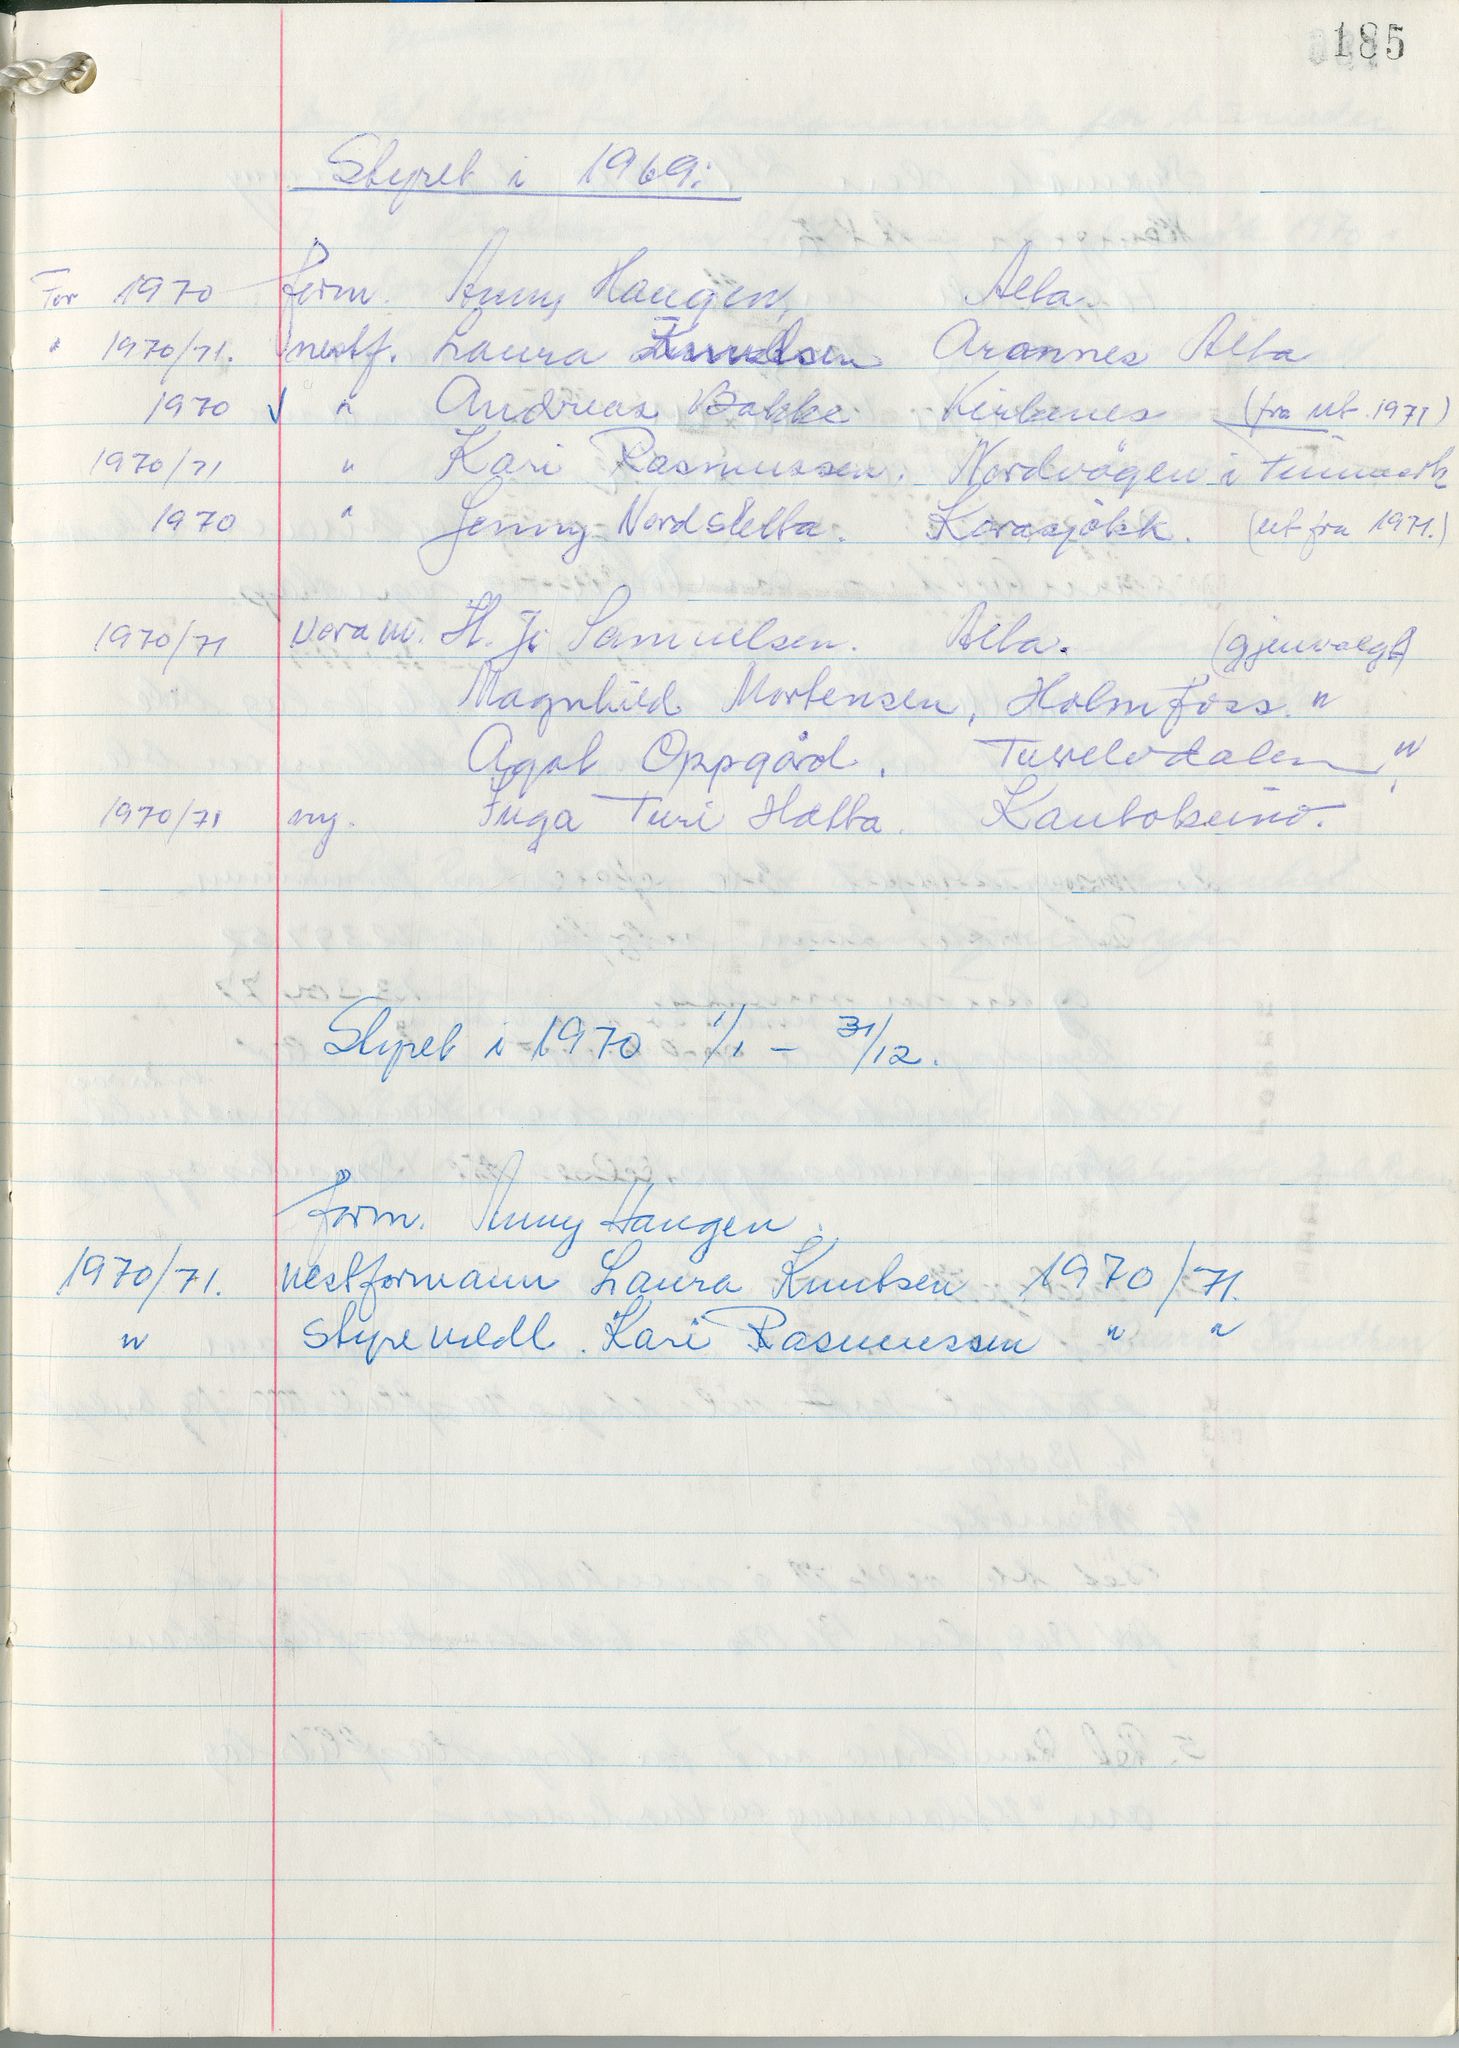 185
Styret i 1969:
For 1970 form. Anny Haugen, Alta.
" 1970/71. nestf. Laura Knutsen Aronnes Alta
1970 ✓ " Andreas Bakke Kirkenes (fra ut. 1971)
1970/71 " Kari Rasmussen. Nordvågen i Finnmark
1970 " Jenny Nordsletta. Karasjokk. (ut fra 1971.)
1970/71 Varam. H. J. Samuelsen. Alta. (gjenvalgt)
Magnhild Mortensen, Holmfoss. "
Agot Oppgård. "
1970/71 ny. Inga Turi Hætta. Kautokeino.
Styret i 1970 1/1 - 31/12.
form. Anny Haugen.
1970/71. nestformann Laura Knutsen 1970/71.
" styremedl. Kari Rasmussen " "